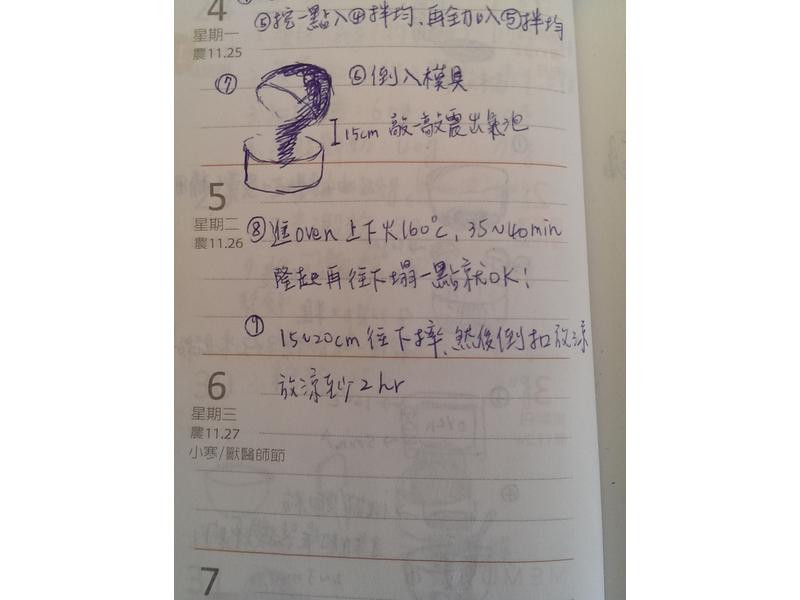 4
⑥挖一點入④拌均、再全加入⑤拌均
星期一
農11.25
⑦
⑥倒入模具
15cm 敲一敲震出氣泡
5
星期二
農11.26
⑧進oven 上下火160°C, 35~40min
隆起再往下塌一點就OK!
⑨
15~20cm 往下摔、然後倒扣放涼
放涼至少2hr
6
星期三
農11.27
小寒/獸醫師節
7